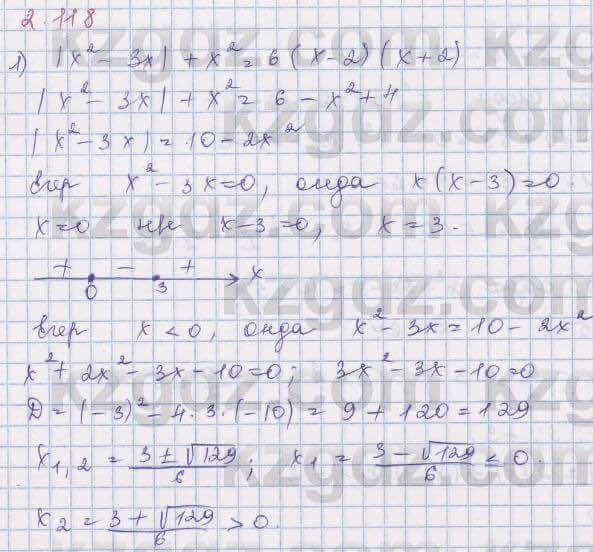 2.118
1) |x² - 3x| + x² = 6 (x-2)(x+2)
|x² - 3x| + x² = 6 - x² + 4
|x² - 3x| = 10 - 2x²
Егер x² - 3x = 0, онда x(x-3) = 0.
x = 0 не x-3 = 0, x = 3.
+ - + x
0 3
Егер x < 0, онда x² - 3x = 10 - 2x²
x² + 2x² - 3x - 10 = 0; 3x² - 3x - 10 = 0
D = (-3)² - 4·3·(-10) = 9 + 120 = 129
x₁,₂ = (3 ± √129)/6; x₁ = (3 - √129)/6 < 0.
x₂ = (3 + √129)/6 > 0.